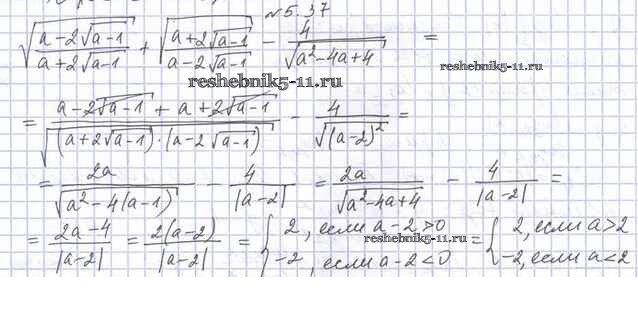 №5.37
√((a-2√(a-1))/(a+2√(a-1))) + √((a+2√(a-1))/(a-2√(a-1))) - 4/√(a²-4a+4) =
reshebnik5-11.ru
reshebnik5-11.ru
= (a-2√(a-1) + a+2√(a-1))/√((a+2√(a-1))·(a-2√(a-1))) - 4/√((a-2)²) =
= 2a/√(a²-4(a-1)) - 4/|a-2| = 2a/√(a²-4a+4) - 4/|a-2| =
= (2a-4)/|a-2| = 2(a-2)/|a-2| = { 2, если a-2>0 = { 2, если a>2
reshebnik5-11.ru
-2, если a-2<0 -2, если a<2